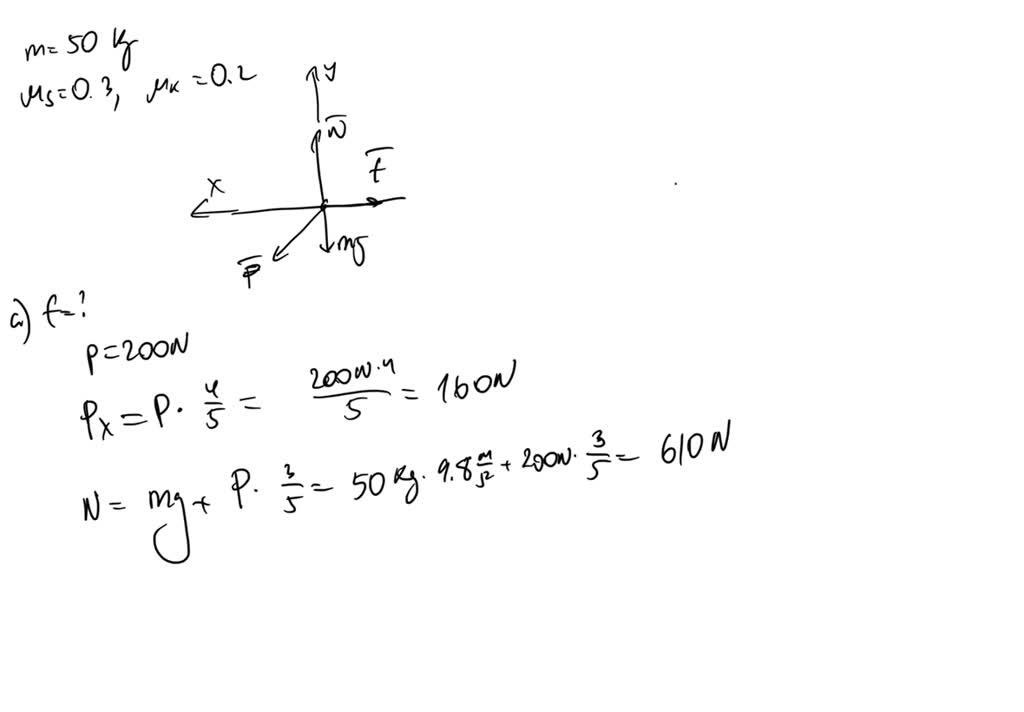 m=50 kg
μs=0.3, μk=0.2
y
N̄
f̄
x
mg
P̄
a) f=?
P=200N
Px = P · 4/5 = 200N·4/5 = 160N
N = mg + P · 3/5 = 50 kg · 9.8 m/s² + 200N · 3/5 = 610 N